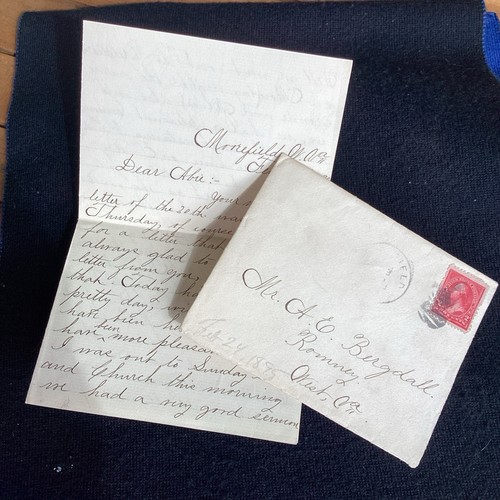 Moorefield, W. Va
Dear Abe:-
Your
letter of the 20th was
Thursday, of course
for a letter that
always glad to
letter from you,
that. Today has
pretty day,
have been
have been more pleasant
I was out to Sunday-
and Church this morning
we had a very good sermon
Mr. A. E. Bergdall.
Romney
West, Va.